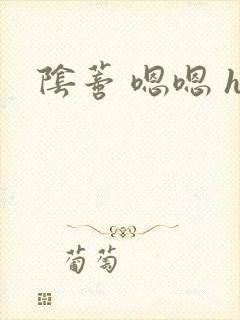 陰蒂 嗯嗯 h
葡萄